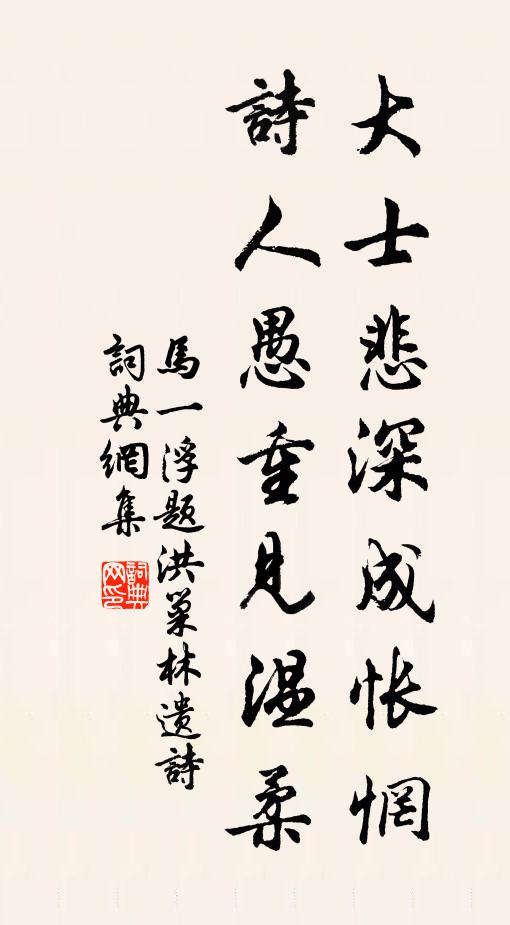 大士悲深成悵惘
詩人愚重見温柔
馬一浮題洪巢林遺詩
詞典網集
詞典
网印